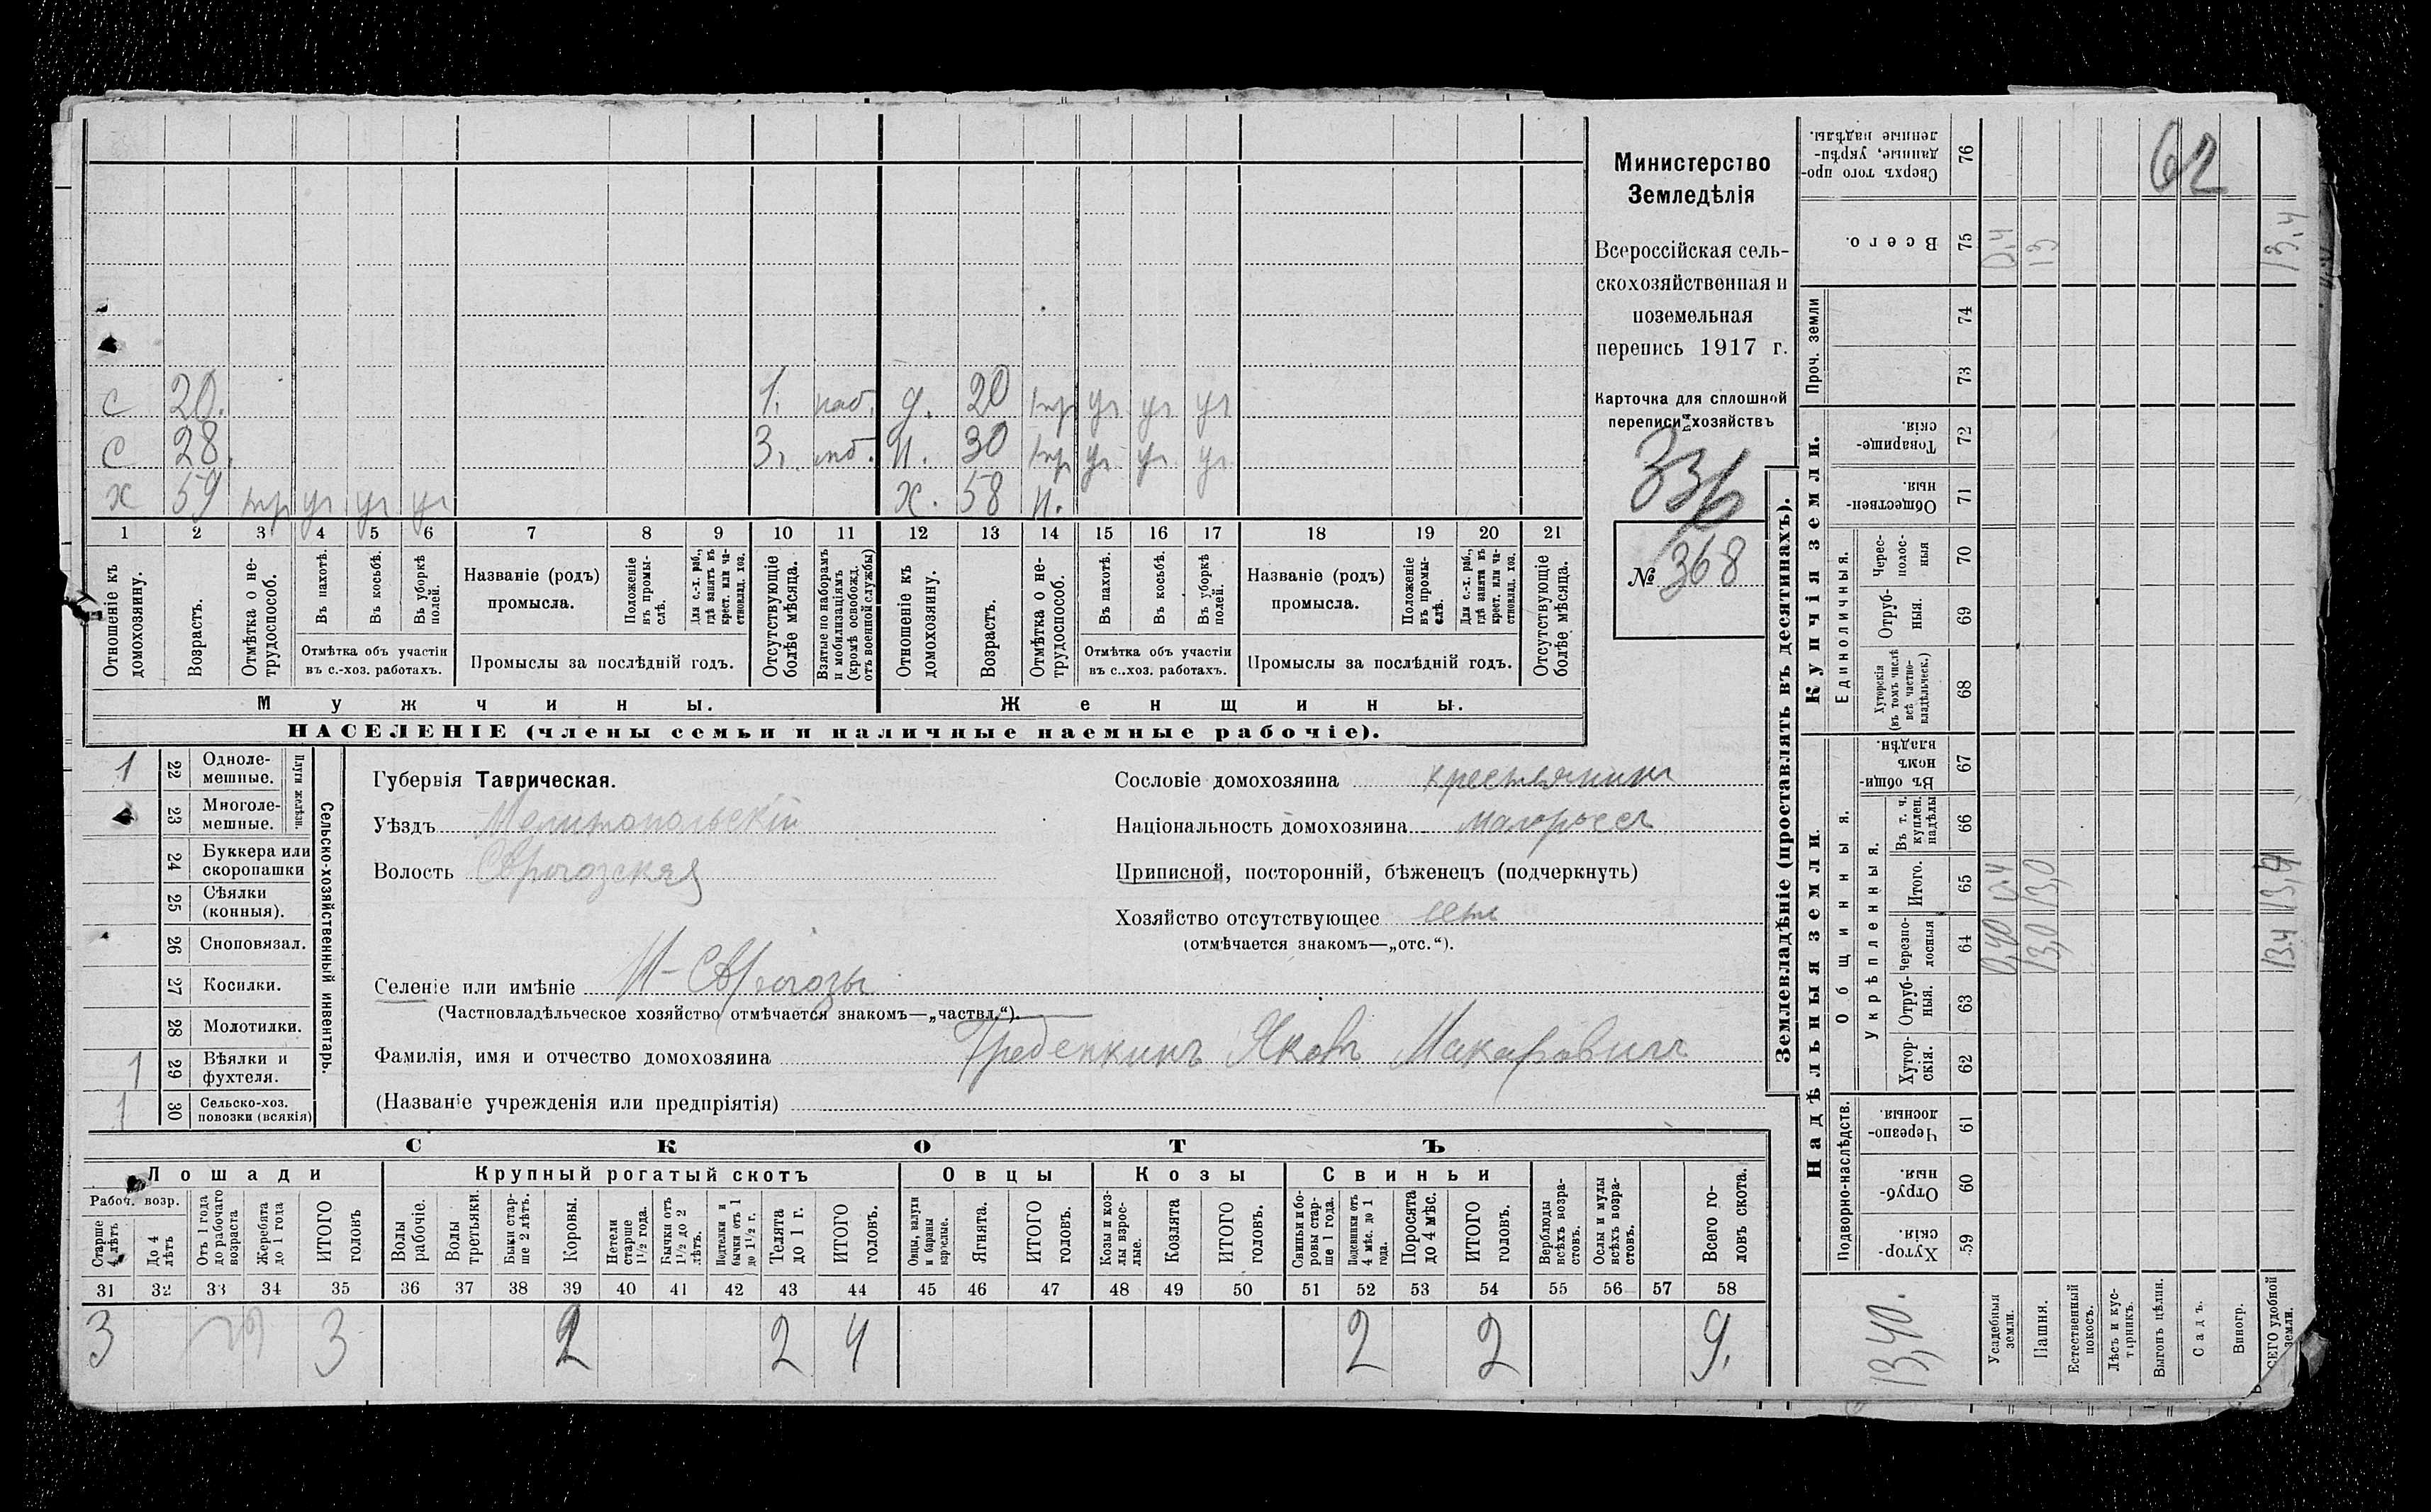 Министерство
Земледѣлія
Всероссійская сель-
скохозяйственная и
поземельная
перепись 1917 г.
Карточка для сплошной
переписи хозяйствъ
336
№ 368
с 20. 1. д. 20 тр уч уч уч
с 28. 3. н. 30 тр уч уч уч
х 59 тр уч уч уч х. 58 н.
1 2 3 4 5 6 7 8 9 10 11 12 13 14 15 16 17 18 19 20 21
Отношеніе къ домохозяину.
Возрастъ.
Отмѣтка о не-трудоспособ.
Въ пахотѣ.
Въ косьбѣ.
Въ уборкѣ полей.
Отмѣтка объ участіи
въ с.-хоз. работахъ.
Названіе (родъ)
промысла.
Положеніе въ промы-слѣ.
Для с.-х. раб., гдѣ занятъ въ крест. или ча-стновлад. хоз.
Промыслы за послѣдній годъ.
Отсутствующіе болѣе мѣсяца.
Взятые по наборамъ и мобилизаціямъ (кромѣ освобожд. отъ военной службы)
Отношеніе къ домохозяину.
Возрастъ.
Отмѣтка о не-трудоспособ.
Въ пахотѣ.
Въ косьбѣ.
Въ уборкѣ полей.
Отмѣтка объ участіи
въ с..хоз. работахъ.
Названіе (родъ)
промысла.
Положеніе въ промы-слѣ.
Для с.-х. раб., гдѣ занята въ крест. или ча-стновлад. хоз.
Промыслы за послѣдній годъ.
Отсутствующіе болѣе мѣсяца.
Мужчины. Женщины.
НАСЕЛЕНІЕ (члены семьи и наличные наемные рабочіе).
1 22 Одноле-мешные.
23 Многоле-мешные.
Плуги желѣзн.
24 Буккера или скоропашки
25 Сѣялки (конныя).
26 Сноповязал.
27 Косилки.
28 Молотилки.
1 29 Вѣялки и фухтеля.
1 30 Сельско-хоз. повозки (всякія)
Сельско-хозяйственный инвентарь.
Губернія Таврическая.
Уѣздъ Мелитопольскій
Волость
Селеніе или имѣніе
(Частновладѣльческое хозяйство отмѣчается знакомъ—„частвл.“).
Фамилія, имя и отчество домохозяина Гребенкинъ Яковъ Макаровичъ
(Названіе учрежденія или предпріятія)
Сословіе домохозяина крестьянинъ
Національность домохозяина малороссъ
Приписной, посторонній, бѣженецъ (подчеркнуть)
Хозяйство отсутствующее
(отмѣчается знакомъ—„отс.“).
СКОТЪ
Лошади Крупный рогатый скотъ Овцы Козы Свиньи
Рабоч. возр.
Старше 4 лѣтъ
До 4 лѣтъ
Отъ 1 года до рабочаго возраста
Жеребята до 1 года
ИТОГО головъ
Волы рабочіе.
Волы третьяки.
Быки стар-ше 2 лѣтъ.
Коровы.
Нетели старше 1½ года.
Бычки отъ 1½ до 2 лѣтъ.
Подтелки и бычки отъ 1 до 1½ г.
Телята до 1 г.
ИТОГО головъ.
Овцы, валухи и бараны взрослые.
Ягнята.
ИТОГО головъ.
Козы и коз-лы взрос-лые.
Козлята
ИТОГО головъ.
Свиньи и бо-ровы стар-ше 1 года.
Подсвинки отъ 4 мѣс. до 1 года.
Поросята до 4 мѣс.
ИТОГО головъ.
Верблюды всѣхъ возра-стовъ.
Ослы и мулы всѣхъ возра-стовъ.
Всего го-ловъ скота.
31 32 33 34 35 36 37 38 39 40 41 42 43 44 45 46 47 48 49 50 51 52 53 54 55 56 57 58
3 3 2 2 4 2 2 9.
Землевладѣніе (проставлять въ десятинахъ).
Надѣльныя земли.
Купчія земли.
Проч. земли
Подворно-наслѣдств.
Общинныя.
Укрѣпленныя.
Единоличныя.
Хутор-скія. 59
Отруб-ныя. 60
Черезпо-лосныя. 61
Хутор-скія. 62
Отруб-ныя. 63
Черезпо-лосныя 64
Итого. 65
Въ т. ч. куплен. надѣлы 66
Въ общин-номъ владѣн. 67
Хуторскія (въ томъ числѣ всѣ частно-владѣльческ.) 68
Отруб-ныя. 69
Черес-полос-ныя 70
Обществен-ныя. 71
Товарище-скія. 72
73
74
Всего. 75
Сверхъ того про-данные, укрѣп-ленные надѣлы. 76
13,40.
Усадебныя земли. 0,40 0,4 0,4
Пашня. 13,0 13,0 13
Естественный покосъ.
Лѣсъ и кус-тарникъ.
Выгонъ цѣлин.
Садъ.
Виногр.
ВСЕГО удобной земли. 13.4 13,4 13.4
62